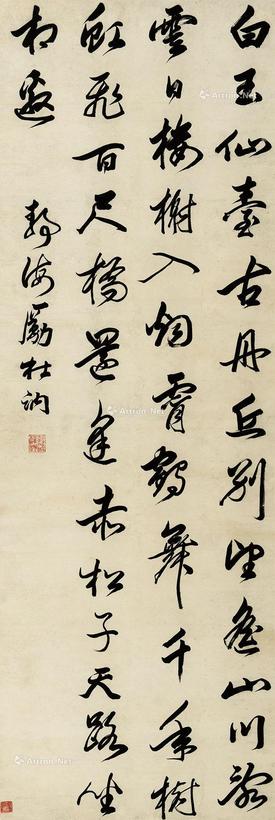 白玉仙臺古丹丘別望遙山川亂
雲日樓榭入烟霄鶴舞千年樹
虹飛百尺橋還逢赤松子天路坐
相邀
靜海勵杜訥